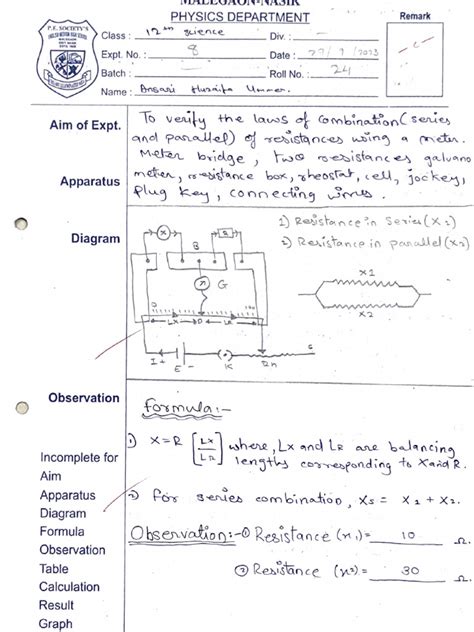 MALEGAON-NASIK
PHYSICS DEPARTMENT
Remark
P. E. SOCIETY'S
Class : 12th science Div. :
Expt. No. : 8 Date : 29/7/2023
Batch : Roll No. : 24
Name : Ansari Huzaifa Ummer.
Aim of Expt.
To verify the laws of combination (series
and parallel) of resistances using a meter.
Apparatus
Meter bridge, two resistances galvano
meter, resistance box, rheostat, cell, jockey,
plug key, connecting wires.
Diagram
1) Resistance in series (x1)
2) Resistance in parallel (x2)
X R
B
G
x1
x2
0
Lx D LR
I+ E- K Rh
Observation
Formula:-
1) X=R [Lx/LR] where, Lx and LR are balancing
lengths corresponding to X and R.
2) for series combination, Xs = X1 + X2.
Observation:- ① Resistance (x1) = 10 Ω.
② Resistance (x2) = 30 Ω.
Incomplete for
Aim
Apparatus
Diagram
Formula
Observation
Table
Calculation
Result
Graph